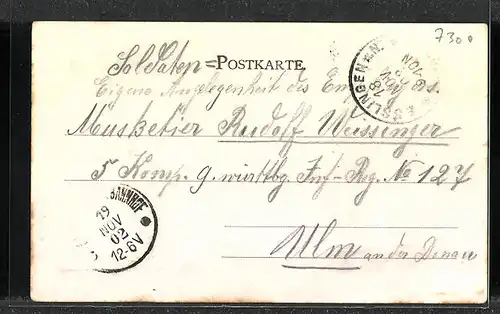 7300
Soldaten = POSTKARTE.
Eigene Angelegenheit des Empfängers.
Musketier Rudolf Weissinger
5 Komp. 9. württbg Inf-Reg. No 127
Ulm an der Donau
ESSLINGEN
18 NOV
BAHNHOF
19
NOV
02
12-6V